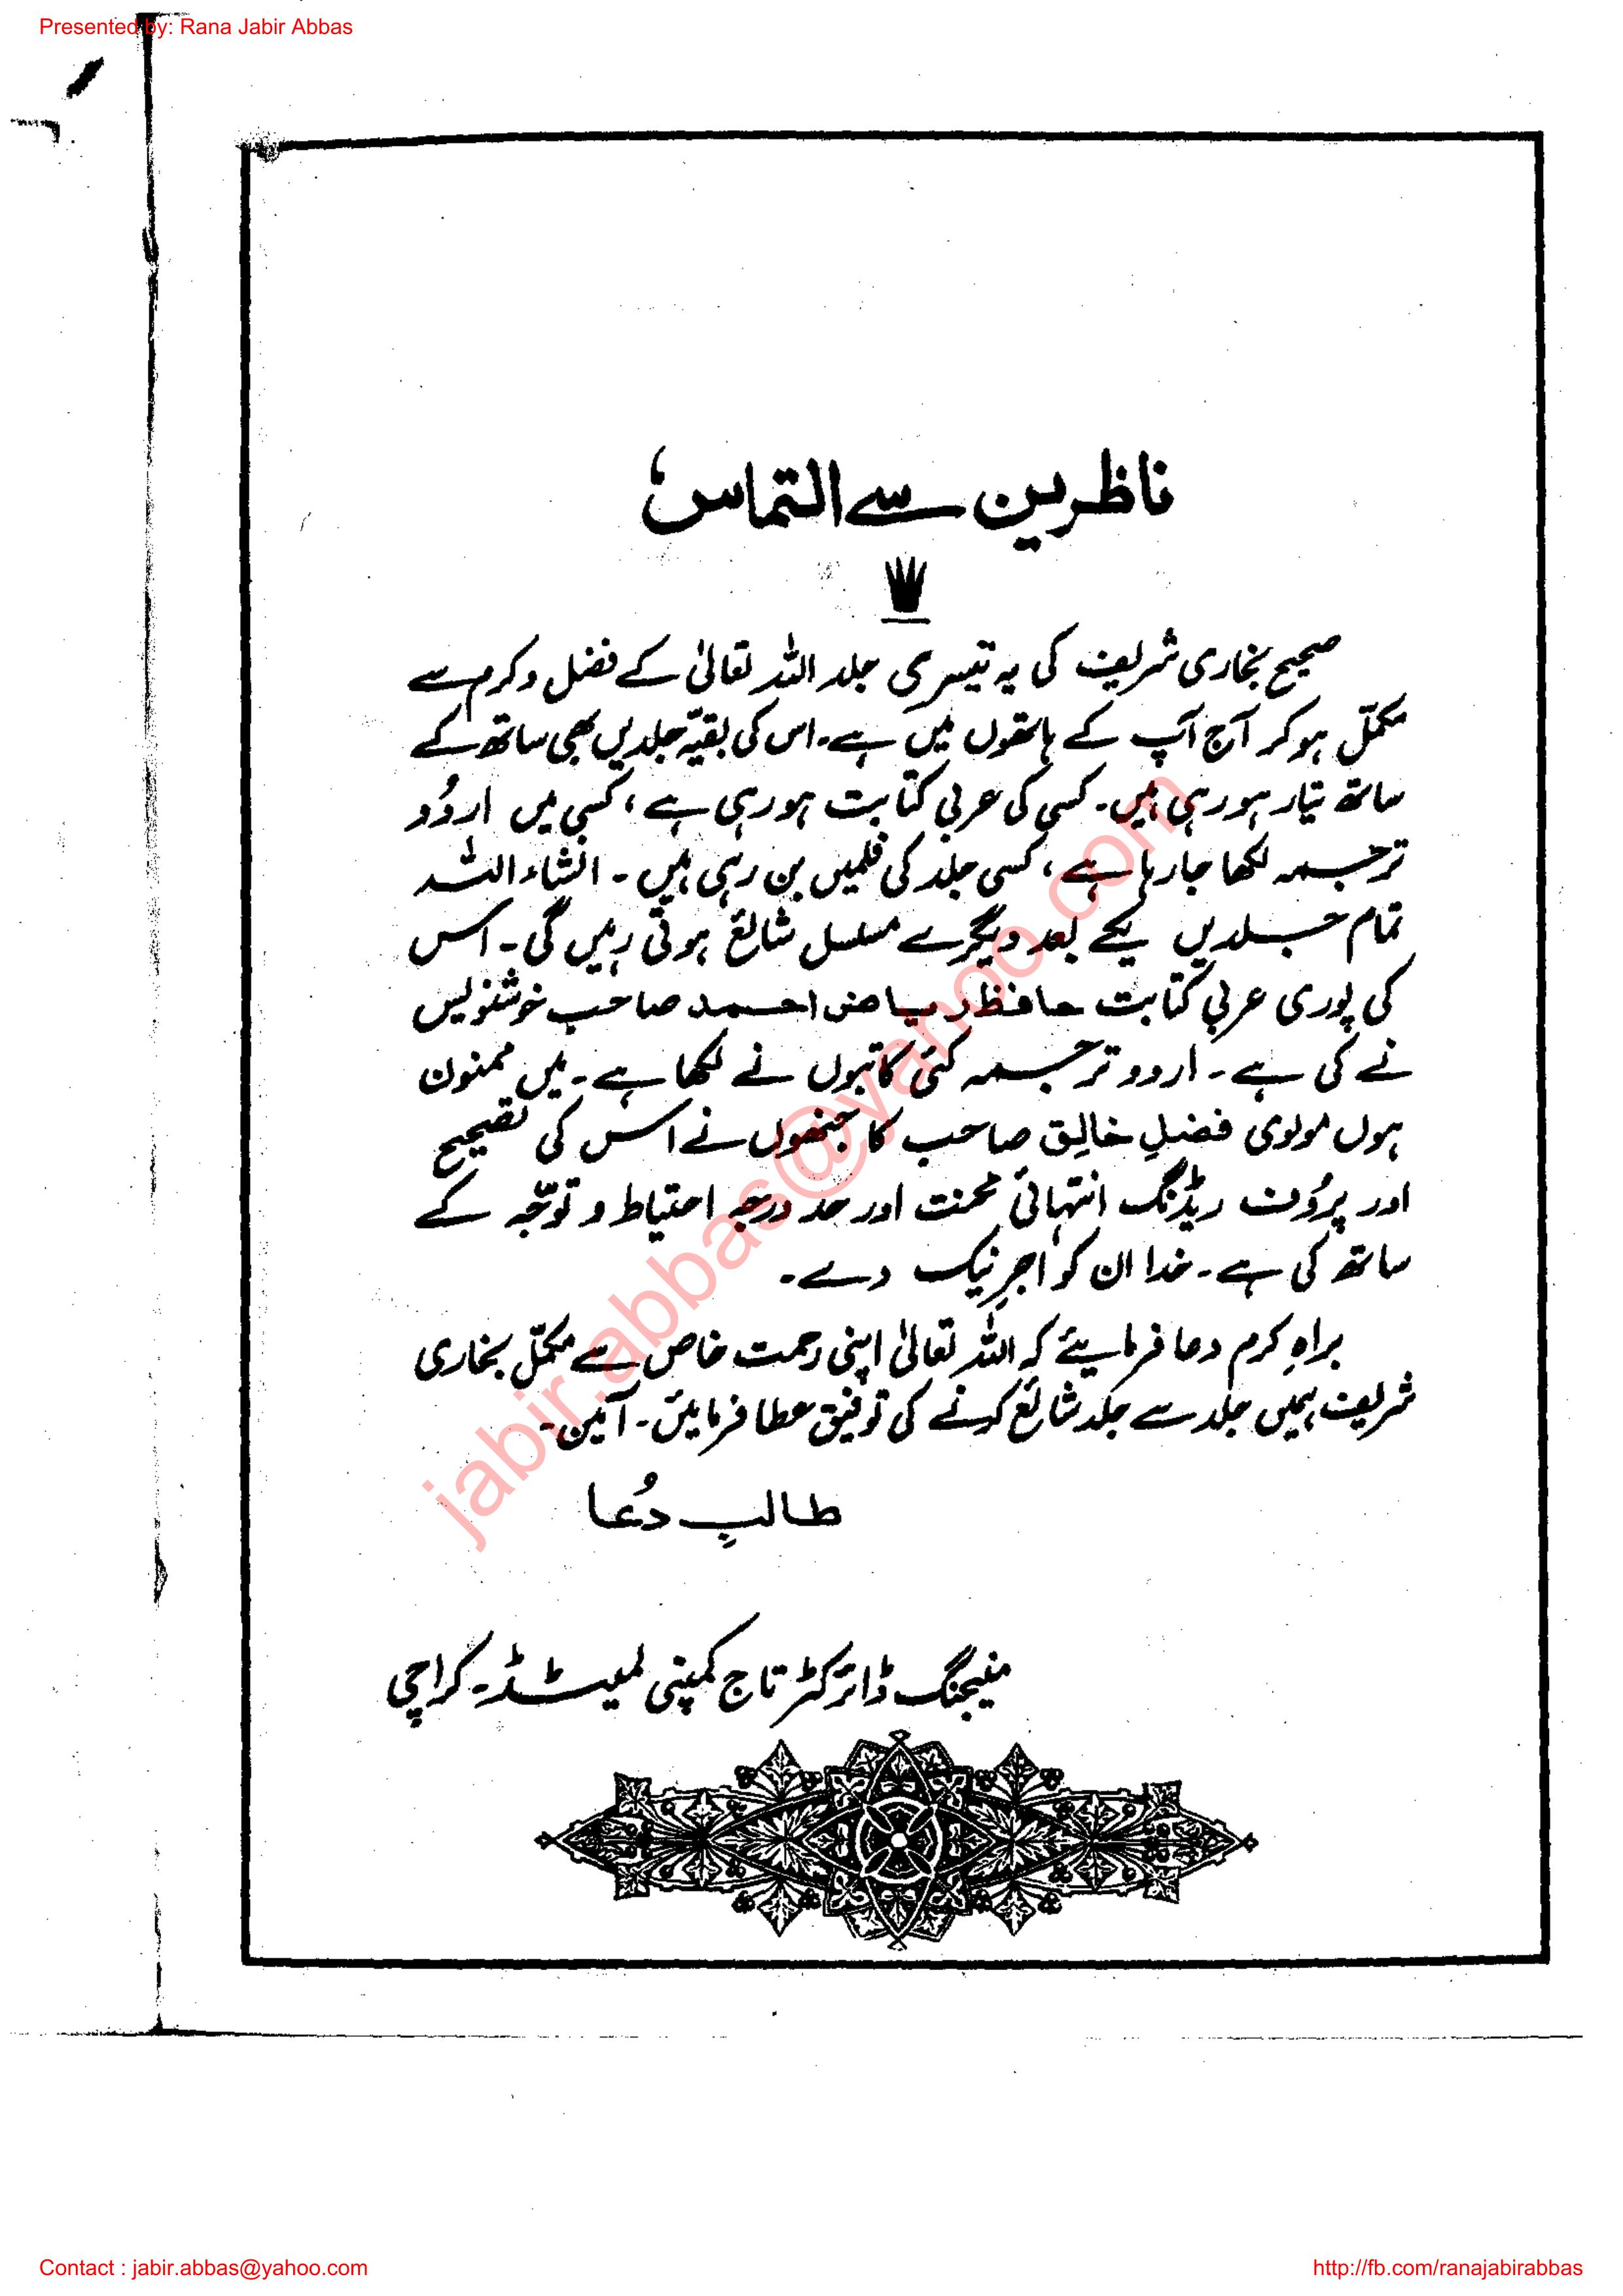 Presented by: Rana Jabir Abbas
ناظرین سے التماس؛
صحیح بخاری شریف کی یہ تیسری جلد اللہ تعالیٰ کے فضل و کرم سے
مکمّل ہوکر آج آپ کے ہاتھوں میں ہے۔ اس کی بقیّہ جلدیں بھی ساتھ کے
ساتھ تیار ہورہی ہیں۔ کسی کی عربی کتابت ہورہی ہے، کسی میں اردُو
ترجمہ لکھا جارہا ہے، کسی جلد کی فلمیں بن رہی ہیں۔ انشاء اللہ
تمام جلدیں یکے بعد دیگرے مسلسل شائع ہوتی رہیں گی۔ اس
کی پوری عربی کتابت حافظ ریاض احمد صاحب خوشنویس
نے کی ہے۔ اردو ترجمہ کئی کاتبوں نے لکھا ہے۔ میں ممنون
ہوں مولوی فضلِ خالِق صاحب کا جنھوں نے اس کی تصحیح
اور پرُوف ریڈنگ انتہائی محنت اور حد درجہ احتیاط و توجّہ کے
ساتھ کی ہے۔ خدا ان کو اجرِ نیک دے۔
براہِ کرم دعا فرمایئے کہ اللہ تعالیٰ اپنی رحمت خاص سے مکمّل بخاری
شریف ہمیں جلد سے جلد شائع کرنے کی توفیق عطا فرمائیں۔ آمین۔
طالبِ دُعا
منیجنگ ڈائرکٹر تاج کمپنی لمیٹڈ۔ کراچی
jabir.abbas@yahoo.com
Contact : jabir.abbas@yahoo.com
http://fb.com/ranajabirabbas